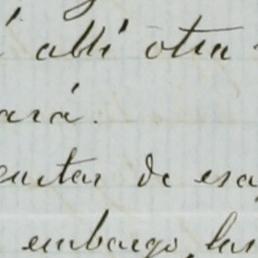 allí otra
ará.
entas de esa
embargo, las